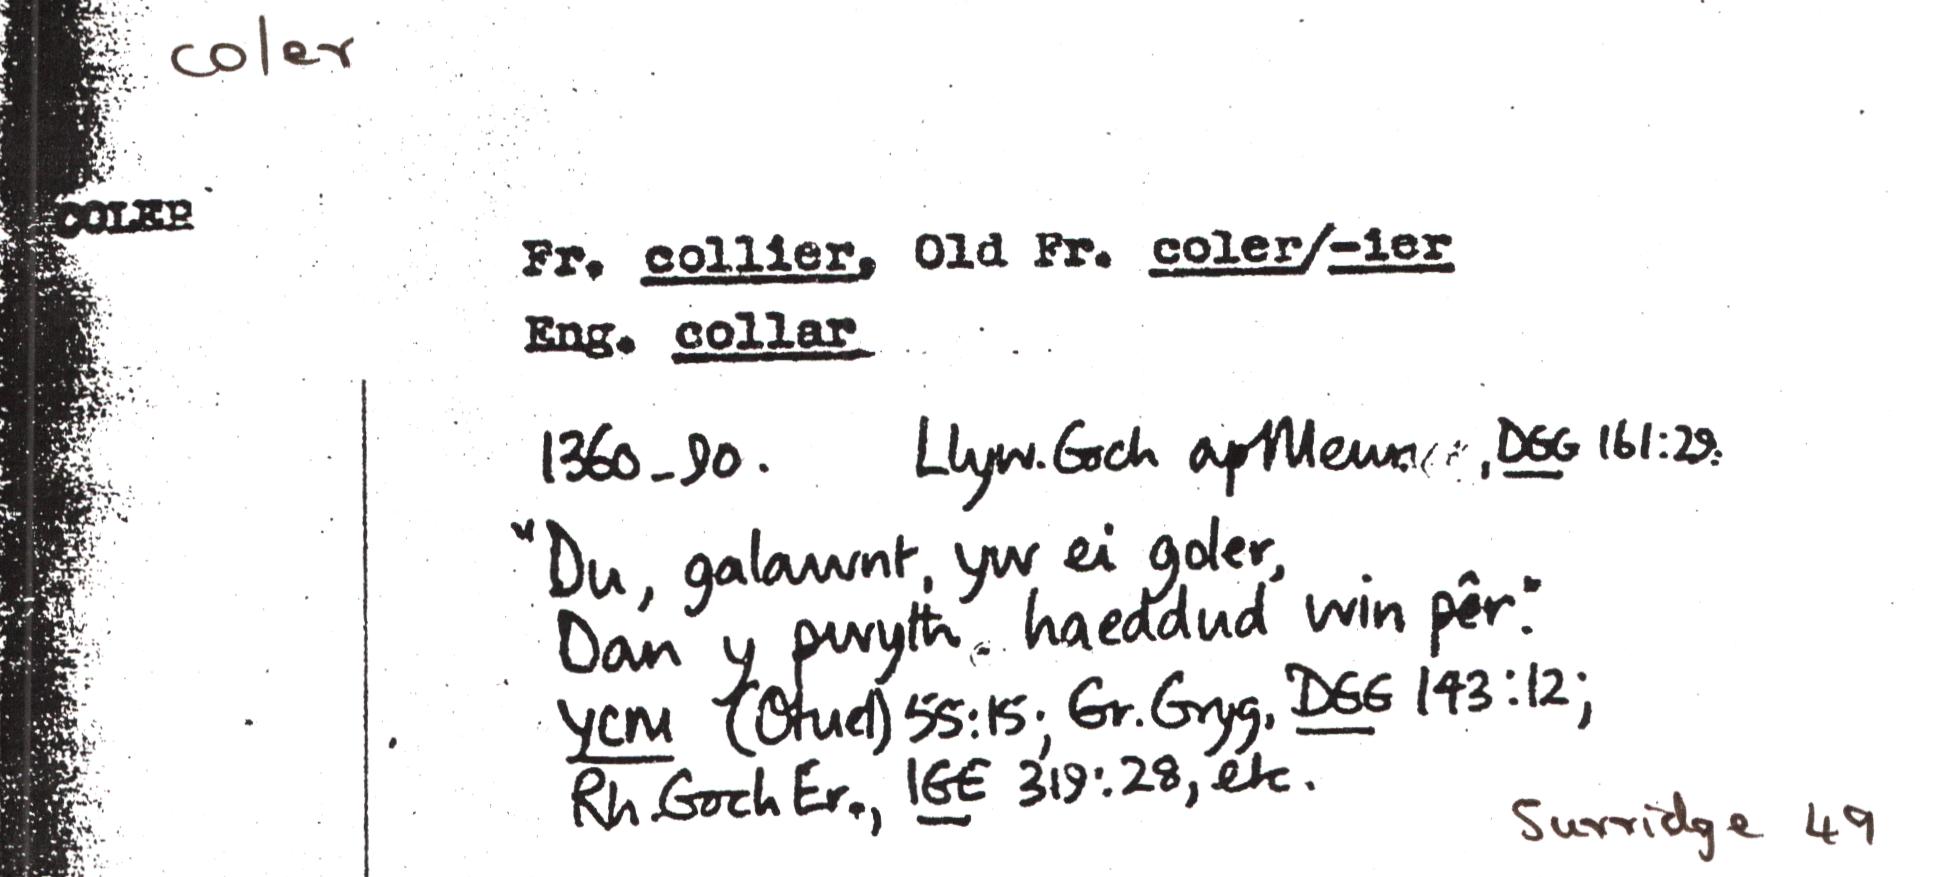 coler
COLER
Fr. collier, Old Fr. coler/-ier
Eng. collar
1360-90. Llyw. Goch ap Meurig, DGG 161:29.
"Du, galawnt, yw ei goler,
Dan y pwyth, haeddud win pêr."
YCM (Otuel) 55:15; Gr. Gryg, DGG 143:12;
Rh. Goch Er., IGE 319:28, etc.
Surridge 49